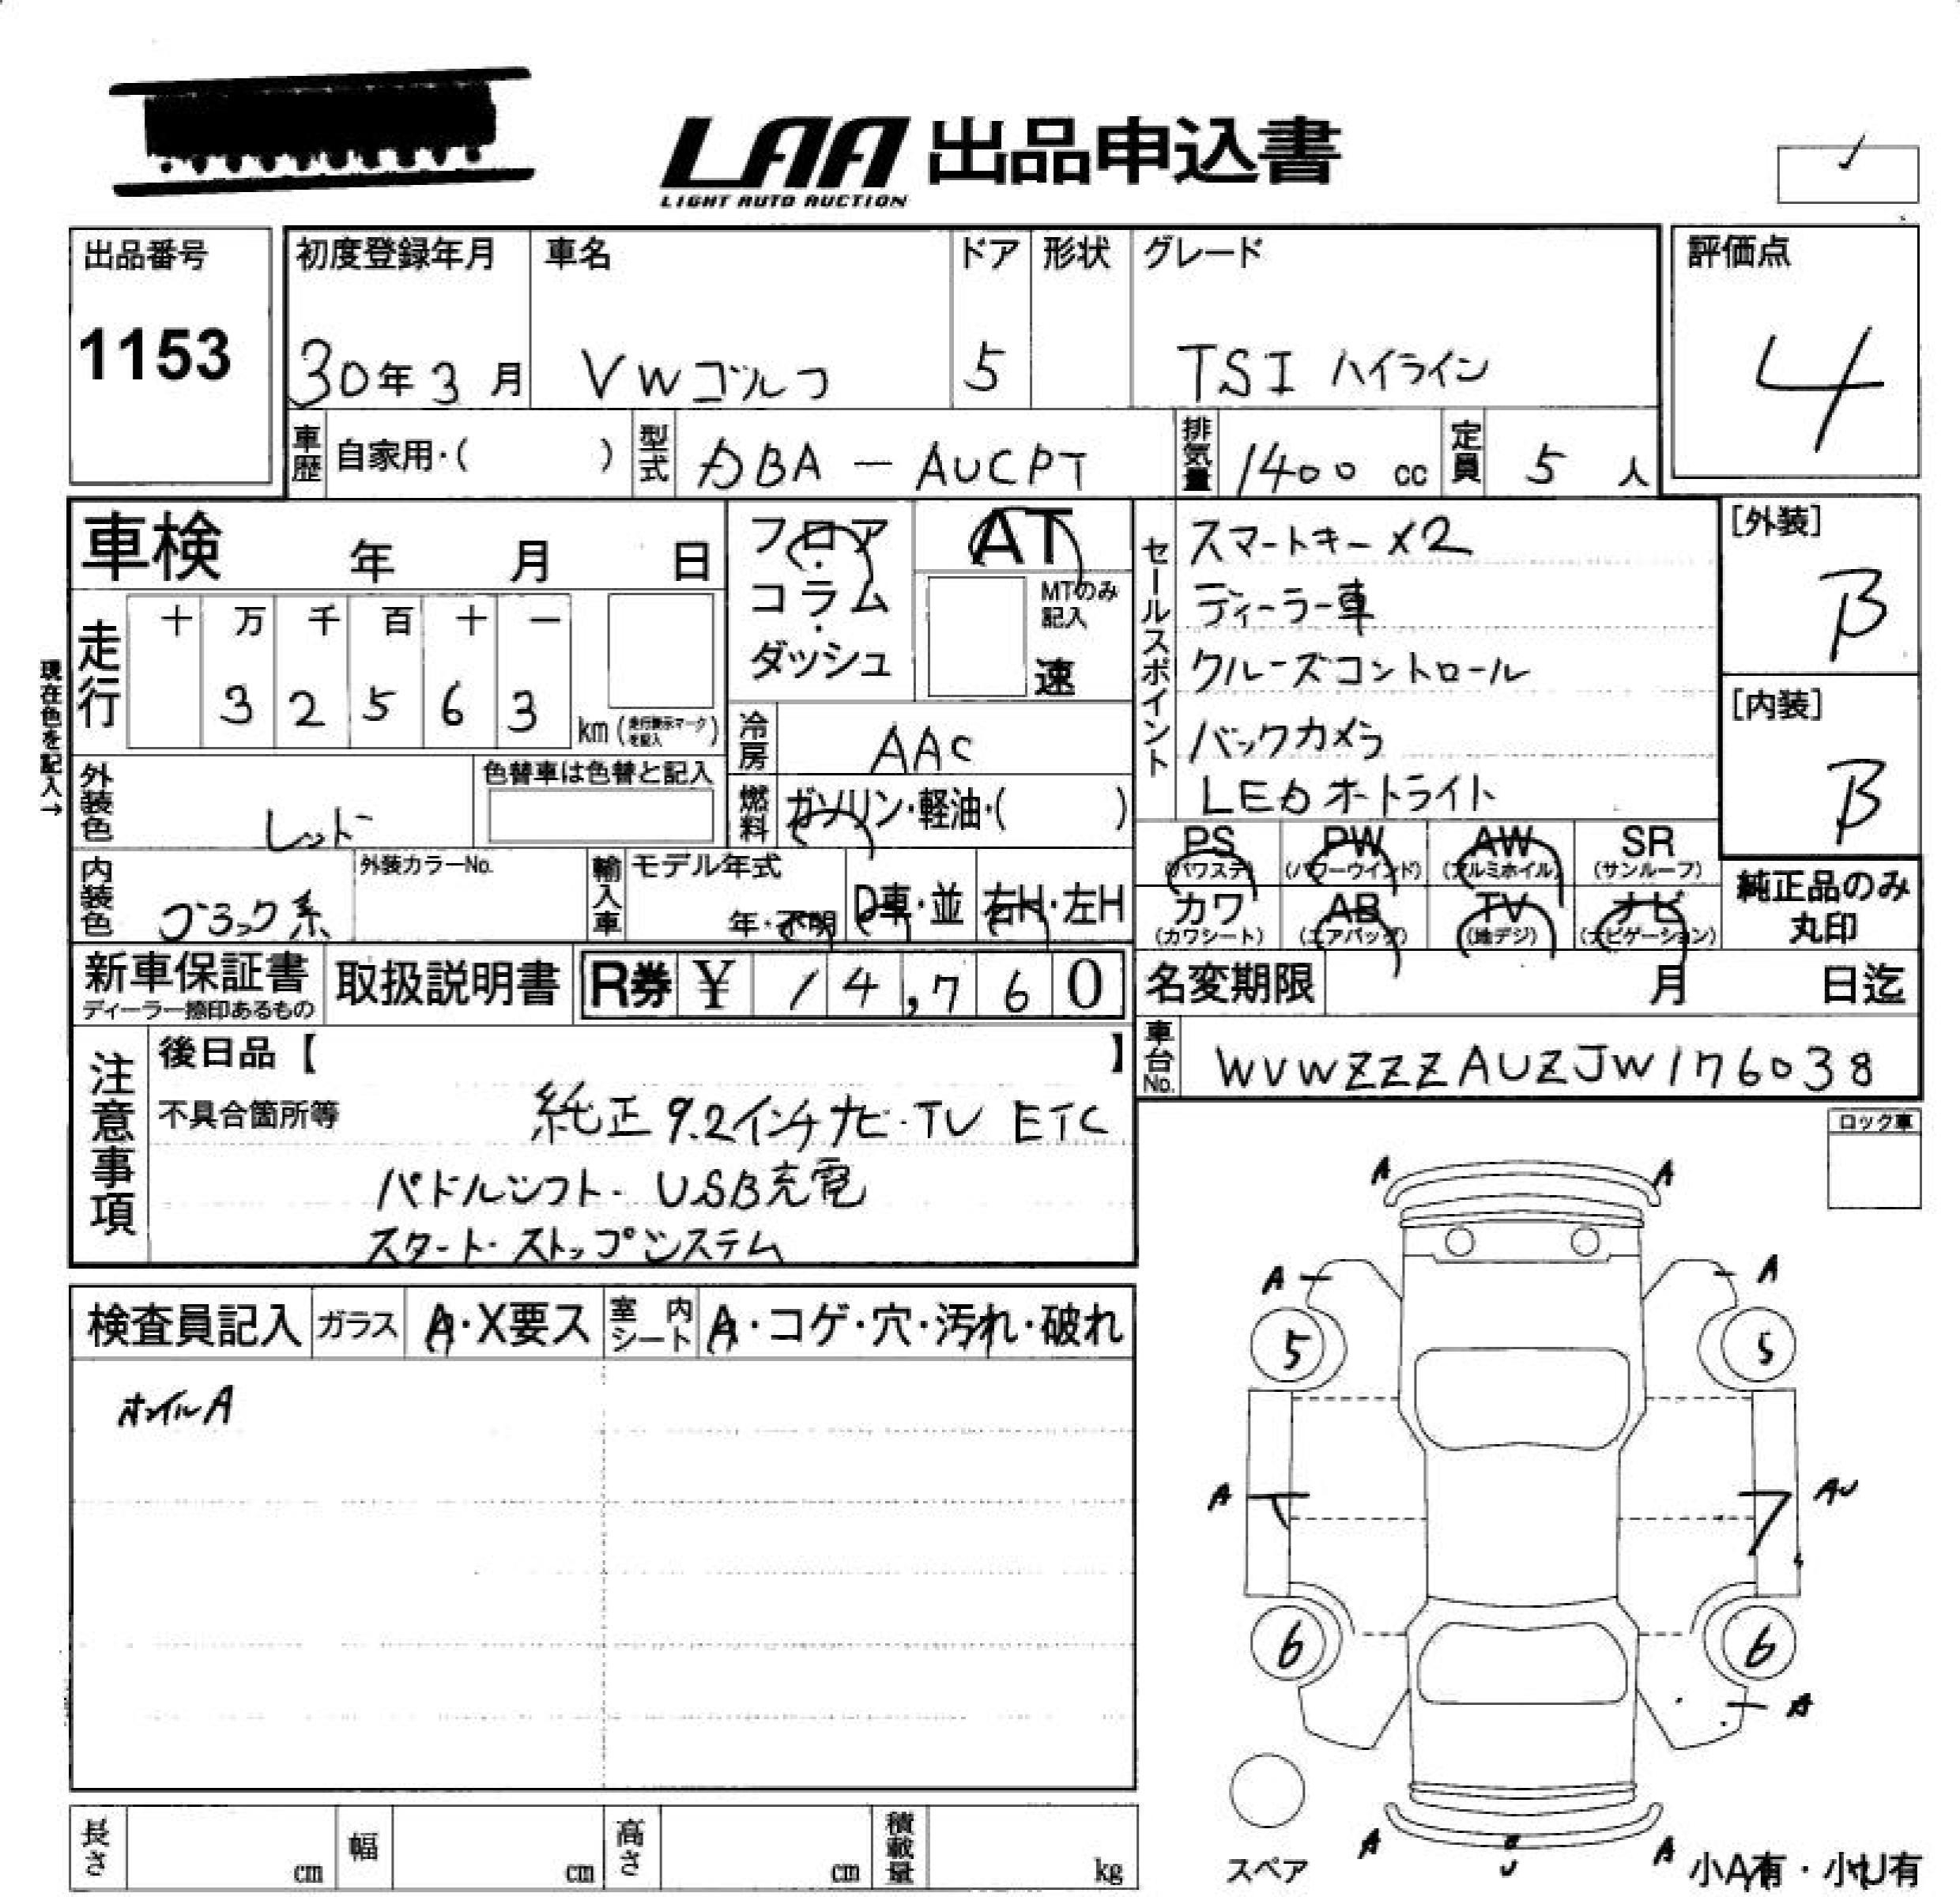 LAA 出品申込書
LIGHT AUTO AUCTION
出品番号
1153
初度登録年月 車名 ドア 形状 グレード
30年3月 VWゴルフ 5 TSI ハイライン
評価点
4
車歴 自家用・( ) 型式 DBA - AUCPT 排気量 1400 cc 定員 5 人
車検 年 月 日
フロア・コラム・ダッシュ
AT
MTのみ記入
速
走行
十 万 千 百 十 一
3 2 5 6 3 km (走行表示マークを記入)
現在色を記入→
外装色 レッド
色替車は色替と記入
冷房 AAC
燃料 ガソリン・軽油・( )
セールスポイント
スマートキー×2
ディーラー車
クルーズコントロール
バックカメラ
LEDホートライト
[外装]
B
[内装]
B
内装色 ブラック系
外装カラーNo.
輸入車 モデル年式
年・不明 D車・並 右H・左H
PS PW AW SR
(パワステ) (パワーウインド) (アルミホイル) (サンルーフ)
カワ AB TV ナビ
(カワシート) (エアバッグ) (地デジ) (ナビゲーション)
純正品のみ
丸印
新車保証書
ディーラー捺印あるもの
取扱説明書
R券 ¥ 14,760
名変期限 月 日迄
車台No. WVWZZZAUZJW176038
注意事項
後日品【 】
不具合箇所等 純正9.2インチナビ・TV ETC
パドルシフト・USB充電
スタート・ストップシステム
ロック車
検査員記入 ガラス A・X要ス 室内シート A・コゲ・穴・汚れ・破れ
ホイルA
A A
A A
5 5
A AU
6 6
A
A U A
スペア
小A有・小U有
長さ cm 幅 cm 高さ cm 積載量 kg